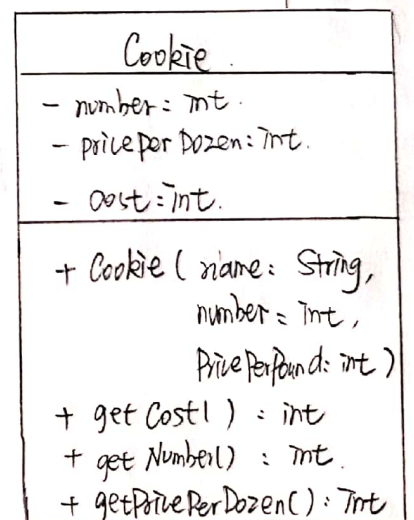 Cookie
- number: int
- pricePerDozen: int.
- cost: int.
+ Cookie ( name: String,
number: int,
PricePerPound: int )
+ getCost( ) : int
+ getNumber() : int.
+ getPricePerDozen() : int